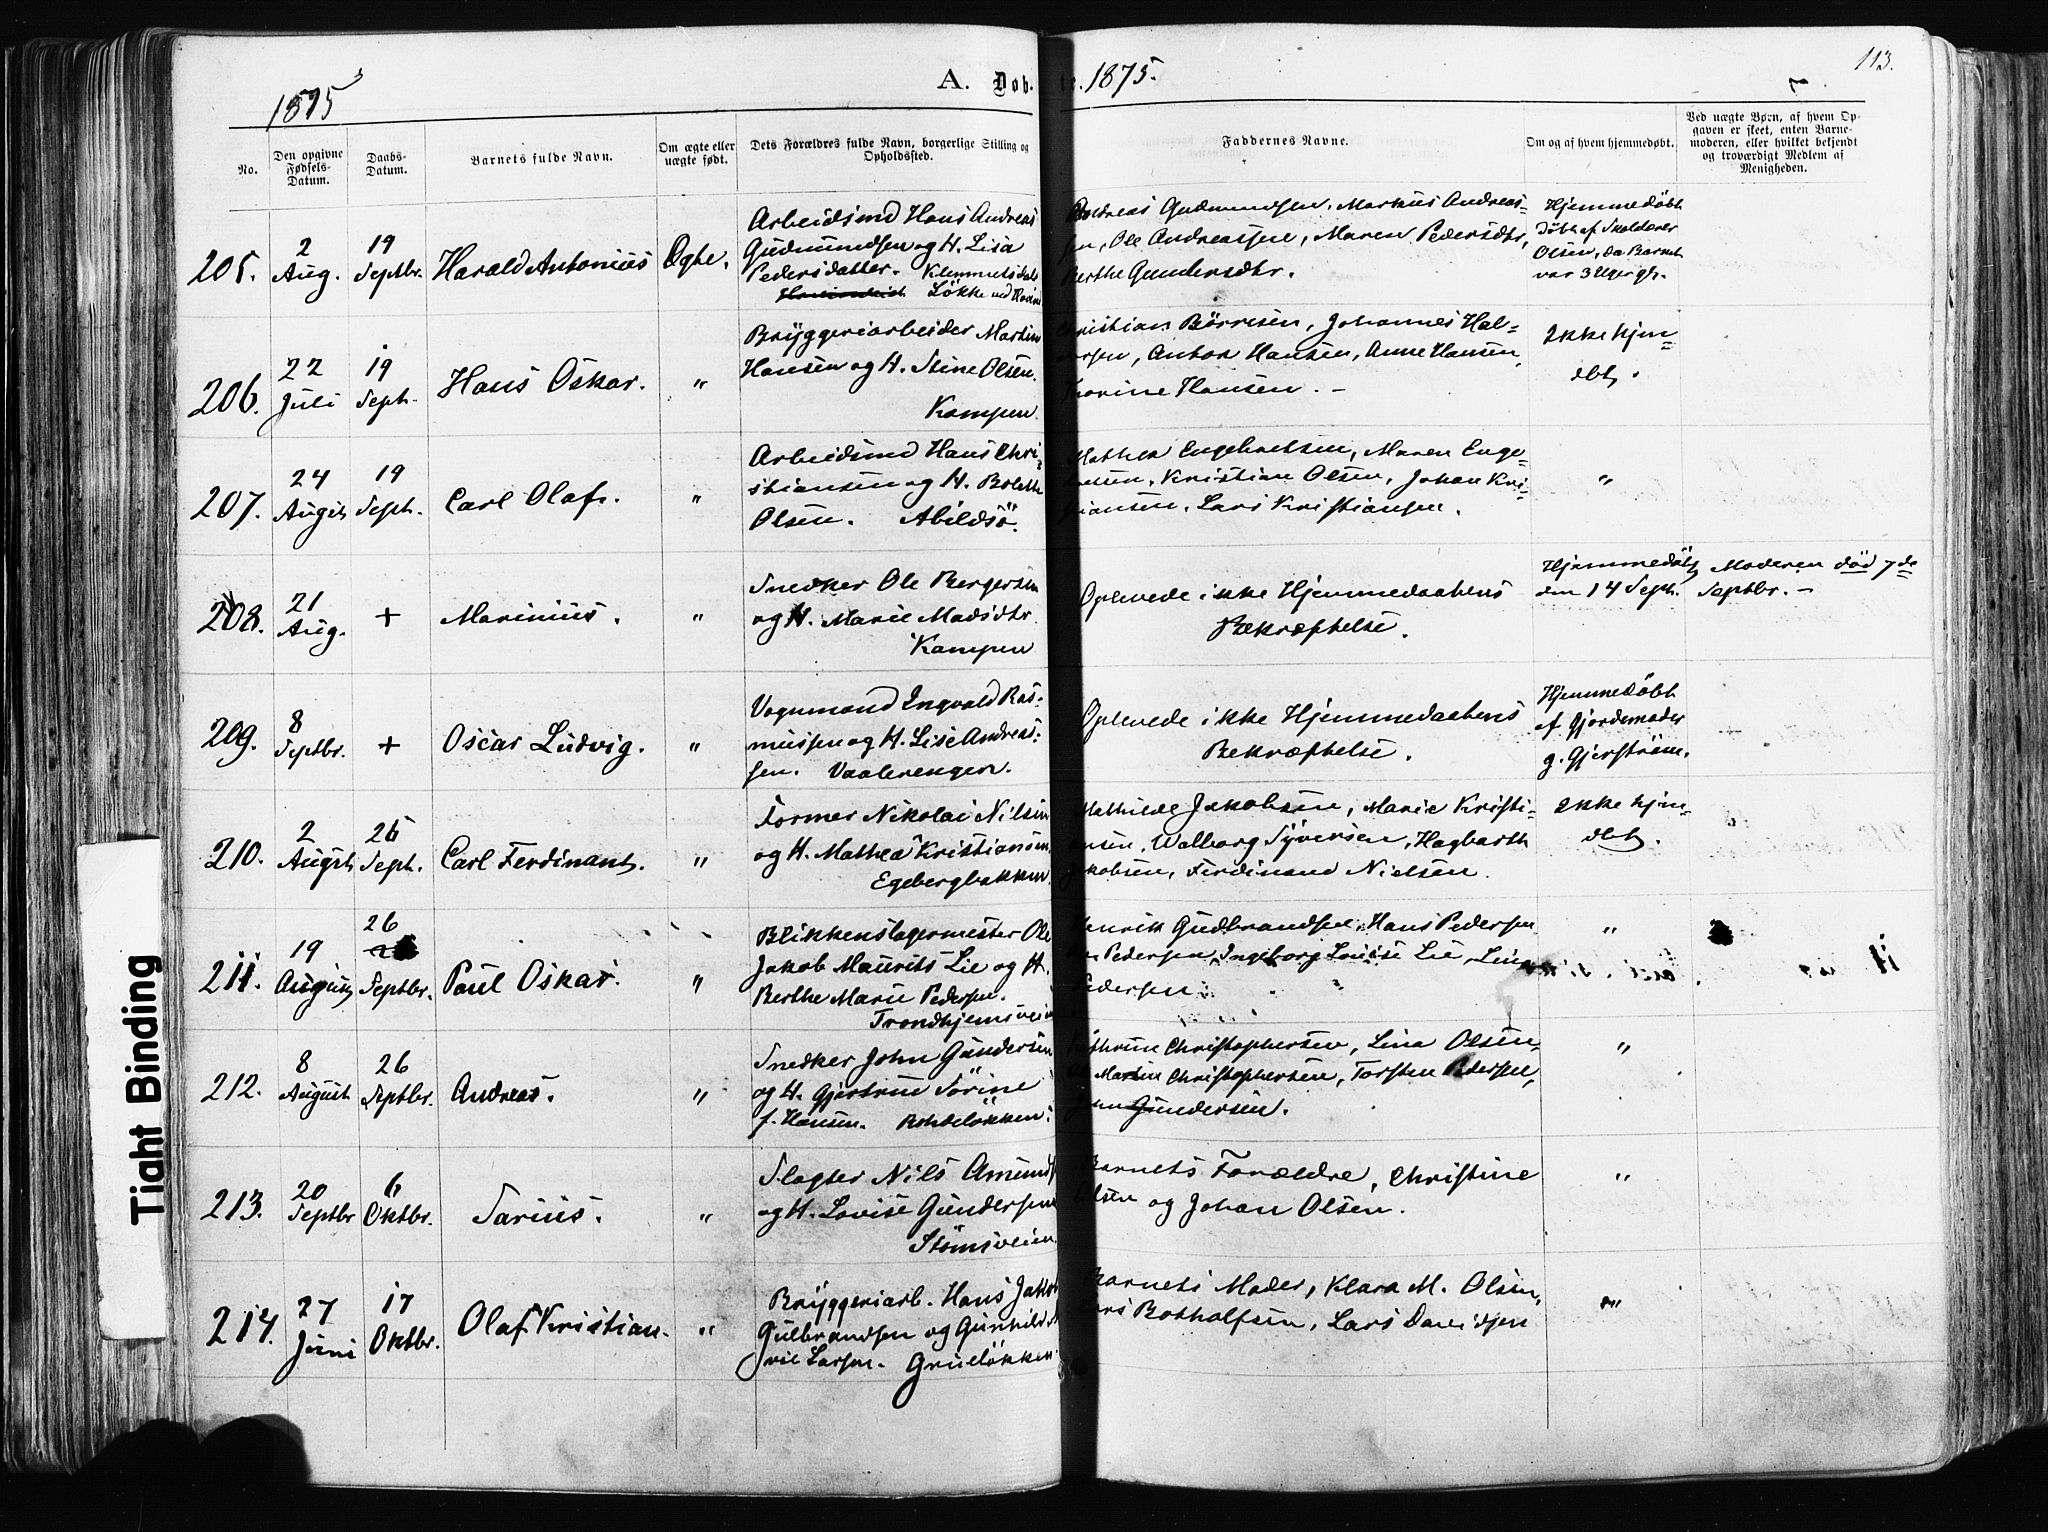 113.
1875
A. Døb
te. 1875.
No.
Den opgivne Fødsels-Datum.
Daabs-Datum.
Barnets fulde Navn.
Om ægte eller uægte født.
Dets Forældres fulde Navn, borgerlige Stilling og Opholdssted.
Faddernes Navne.
Om og af hvem hjemmedøbt.
Ved uægte Børn, af hvem Op-
gaven er skeet, enten Barne-
moderen, eller hvilket bekjendt
og troværdigt Medlem af
Menigheden.
205.
2 Aug.
19 Septbr.
Harald Antonius
Ægte.
Arbeidsmd Hans Andreas
Gudmundsen og H. Lisa
Pedersdatter. Klemmetsdals
Løkke ved
Andreas Gudmundsen, Markus Andreas-
sen, Ole Andreassen, Maren Pedersdtr,
Berthe Gundersdtr.
Hjemmedøbt
Døbt af Skolelærer
Olsen, da Barnet
var 3 Uger gl.
206.
22 Juli
19 Septr.
Hans Oskar.
"
Bryggeriarbeider Martin
Hansen og H. Stine Olsen.
Kampen.
Christian Børresen, Johannes Hal-
vorsen, Anton Hansen, Anne Hansen,
Thorine Hansen. -
Ikke hjm-
dbt.
207.
24 Augst
19 Septr.
Carl Olaf.
"
Arbeidsmd Hans Chri-
stiansen og H. Bolette
Olsen. Abildsø.
Mathea Engebretsen, Maren Enge-
bretsen, Kristian Olsen, Johan Kri-
stiansen, Lars Kristiansen.
"
208.
21 Aug.
+
Marinius.
"
Snedker Ole Bergersen
og H. Marie Madsdtr
Kampen
Oplevede ikke Hjemmedaabens
Bekræftelse.
Hjemmedøbt
den 14 Septr.
Moderen død 7de
Septbr. -
209.
8 Septbr.
+
Oscar Ludvig.
"
Vognmand Ingvald Ras-
mussen og H. Lise Andreas-
sen. Vaalerengen.
Oplevede ikke Hjemmedaabens
Bekræftelse.
Hjemmedøbt
af Gjordemoder
g. Gjerstrøm.
210.
2 Augst
26 Septr.
Carl Ferdinant.
"
Former Nikolai Nilsen
og H. Mathea Kristiansen
Egebergbakken
Mathilde Jakobsen, Marie Kristi-
ansen, Walborg Syversen, Hagbarth
Jakobsen, Ferdinand Nielsen.
Ikke hjm-
dbt.
211.
19 August
26 Septbr.
Paul Oskar.
"
Blikkenslagermester Ole
Jakob Maurits Lie og H.
Berthe Marie Pedersen.
Trondhjemsveien
Henrik Gudbrandsen, Hans Pedersen
Pedersen, Ingeborg Louise Lie, Lina
Pedersen.
"
212.
8 August
26 Septbr.
Andreas.
"
Snedker John Gundersen
og H. Gjertrud Sørine
f. Hansen. Rodeløkken.
Christophersen, Lina Olsen,
Martin Christophersen, Torsten Pedersen,
John Gundersen.
"
213.
20 Septbr
6 Oktbr.
Sarius.
"
Slagter Nils Amunds
og H. Lovise Gundersen
Strømsveien
Barnets Forældre, Christine
Olsen og Johan Olsen.
"
214.
27 Juni
17 Oktbr.
Olaf Kristian.
"
Bryggeriarb. Hans Jakob
Gulbrandsen og Gunhild
Larsen. Grüeløkken
Barnets Moder, Klara M. Olsen,
Lars Botholfsen, Lars Danielsen
"
Tight Binding